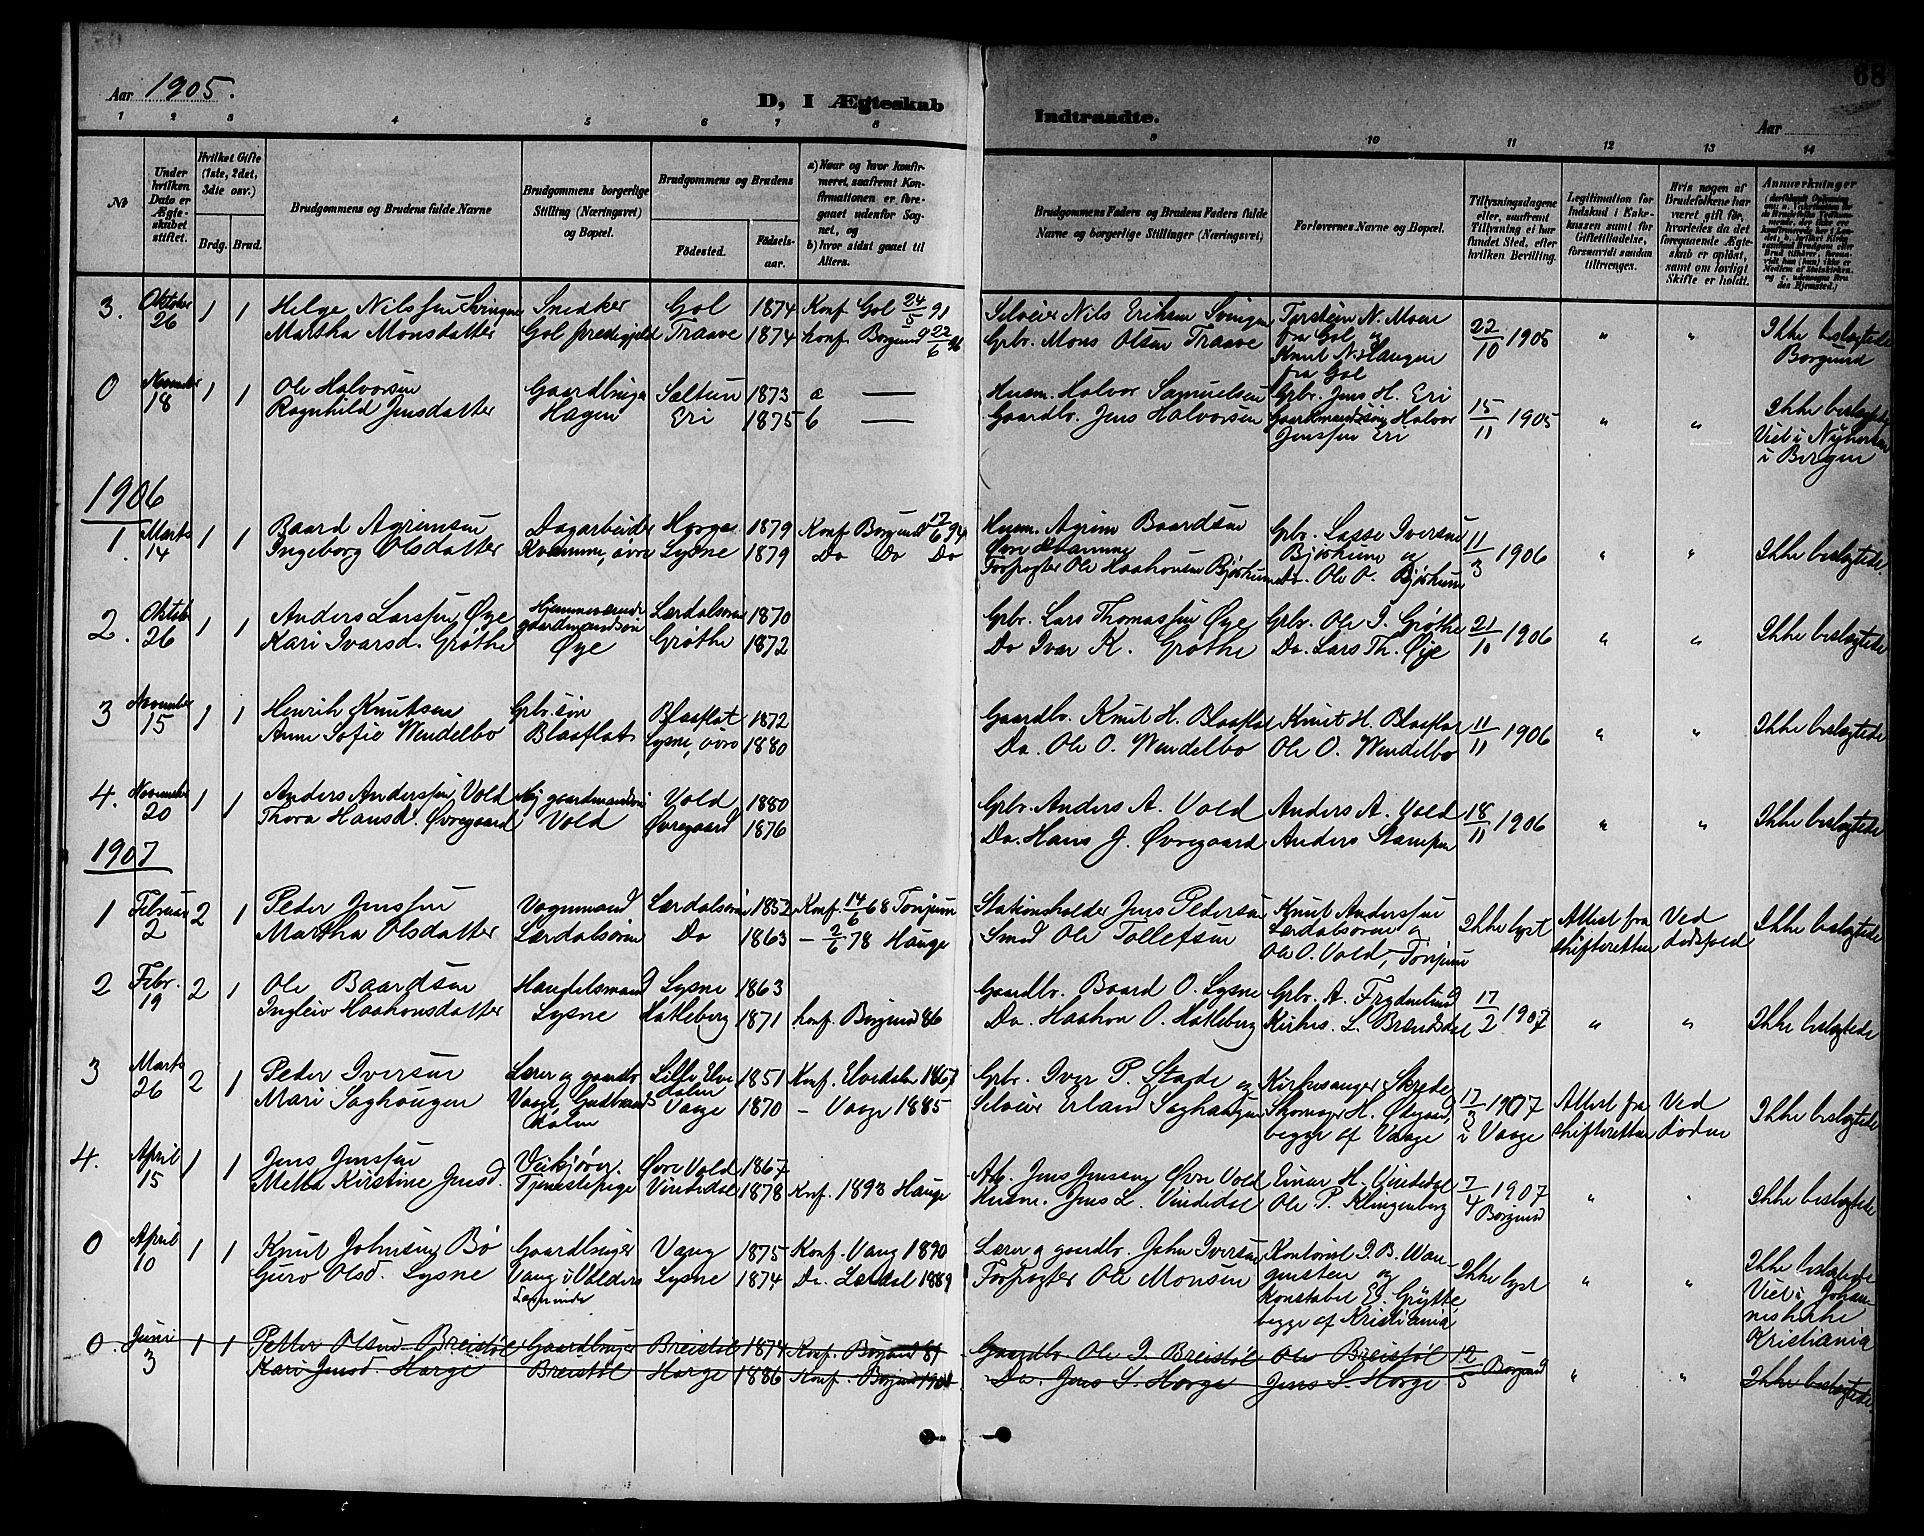 Aar 1905.
D, I Ægteskab
Indtraadte.
Aar
68
1 2 3 4 5 6 7 8 9 10 11 12 13 14
No
Under hvilken Dato er Ægteskabet stiftet.
Hvilket Gifte (1ste, 2det, 3die osv.)
Brdg. Brud.
Brudgommens og Brudens fulde Navne
Brudgommens borgerlige Stilling (Næringsvei) og Bopæl.
Brudgommens og Brudens
Fødested. Fødselsaar.
a) Naar og hvor konfirmeret, saafremt Konfirmationen er foregaaet udenfor Sognet, og
b) hvor sidst gaaet til Alters.
Brudgommens Faders og Brudens Faders fulde Navne og borgerlige Stillinger (Næringsvei)
Forlovernes Navne og Bopæl.
Tillysningsdagene eller, saafremt Tillysning ei har fundet Sted, efter hvilken Bevilling.
Legitimation for Indskud i Enkekassen samt for Giftetilladelse, forsaavidt saadan tiltrænges.
Hvis nogen af Brudefolkene har været gift før, hvorledes da det foregaaende Ægteskab er opløst, samt om lovligt Skifte er holdt.
Anmærkninger
3. Oktober 26 1 1 Helge Nilssen Svingen Snedker Gol 1874 Konf Gol 24/5 91 Selveier Nils Eriksen Svingen Torstein N. Moen fra Gol og 22/10 1905 " " Ikke beslægtede
Martha Monsdatter Gol prestegjeld Traave 1874 konf. Borgund 22/6 Grbr. Mons Olsen Traave Knut N. Haugen fra Gol Borgund
0 November 18 1 1 Ole Halvorsen Gaardbruger Sæltun 1873 a — Husm. Halvor Samuelsen Grbr. Jens H. Eri 15/11 1905 " " Ikke beslægtede
Ragnhild Jensdatter Hagen Eri 1875 b — Gaardbr. Jens Halvorsen Gaardmandssøn Halvor Jenssen Eri Viet i Nykirken i Bergen
1906
1. Marts 14 1 1 Baard Agrimsen Dagarbeider Horge 1879 Konf Borgund 17/6 94 Husm. Agrim Baardsen Øvre Kvamme Grbr. Lasse Iversen Bjørkum og 11/3 1906 " " Ikke beslægtede.
Ingeborg Olsdatter Kvamme, øvre Lysne 1879 Do Do Do Forpagter Ole Haakonsen Bjørkum Do. Ole O. Bjørkum
2. Oktob. 26 1 1 Anders Larssen Øye Hjemmeværende gaardmandssøn Lærdalsøren 1870 Grbr. Lars Thomassen Øye Grbr. Ole I. Grøthe 21/10 1906 " " Ikke beslægtede
Kari Ivarsd. Grøthe Øye Grøthe 1872 Do Ivar K. Grøthe Do. Lars Th. Øye
3 November 15 1 1 Henrik Knutsen Grbr. søn Blaaflat 1872 Gaardbr. Knut H. Blaaflat Knut H. Blaaflat 11/11 1906 " " Ikke beslægtede
Anne Sofie Wendelbo Blaaflat Lysne, øvre 1880 Do. Ole O. Wendelbo Ole O. Wendelbo
4. November 20 1 1 Anders Anderssen Vold gaardmandssøn Vold 1880 Grbr. Anders A. Vold Anders A. Vold 18/11 1906 " " Ikke beslægtede
Thora Hansd. Øvregaard Vold Øvregaard 1876 Do. Hans J. Øvregaard Anders Stampen
1907
1 Februar 2 2 1 Peder Jenssen Vognmand Lærdalsøren 1852 Konf. 14/6 68 Tonjum Stationsholder Jens Pedersen Knut Anderssen Lærdalsøren og Ikke lyst Attest fra skifteretten Ved dødsfald Ikke beslægtede
Martha Olsdatter Lærdalsøren Do 1863 – 2/6 78 Hauge Smed Ole Tollefsen Ole O. Vold, Tonjum
2 Febr. 19 2 1 Ole Baardsen Handelsmand Lysne 1863 Gaardbr. Baard O. Lysne Grbr. A. Frydenlund 17/2 1907 " " Ikke beslægtede
Ingleiv Haakonsdatter Lysne Hatleberg 1871 konf. Borgund 86 Do. Haakon O. Hatleberg Kirkes. L. Brændsdal
3 Marts 26 2 1 Peder Iversen Lærer og gaardbr. Lille Elvedalen 1851 Konf. Elvedalen 1867 Grbr. Iver P. Stade og Kirkesanger Skrede 17/3 1907 Attest fra skifteretten Ved døden Ikke beslægtede
Mari Saghougen Vaage Gudbrandsdalen Vaage 1870 – Vaage 1885 Selveier Erland Saghaugen Skomager H. Øtgaard, begge af Vaage i Vaage
4. April 15 1 1 Jens Jenssen Veikjører. Øvre Vold 1867 Arb. Jens Jenssen Øvre Vold Einar H. Vindedal 7/4 1907 Borgund " " Ikke beslægtede
Metta Kirstine Jensd. Tjenestepige Vindedal 1878 Konf. 1893 Hauge Husm. Jens L. Vindedal Ole P. Klingenberg
0 April 10 1 1 Knut Johnsen Bø Gaardbruger Vang 1875 Konf. Vang 1890 Lærer og gaardbr. John Iversen Kontorist I. B. Wangensten og Ikke lyst " " Ikke beslægtede
Guro Olsd. Lysne Vang i Valders Lysne 1874 Do. Lærdal 1889 Forpagter Ole Monsen Konstabel E. Grytte begge af Kristiania Viet i Johanneskirke Kristiania
0. Juni 3 1 1 Petter Olsen Breistøl Gaardbruger Breistøl 1874 Konf. Borgund 89 Gaardbr. Ole I. Breistøl Ole Breistøl 12/5 Borgund " " Ikke beslægtede.
Kari Jensd. Horge Breistøl Horge 1886 Konf. Borgund 1901 Do. Jens S. Horge Jens S. Horge